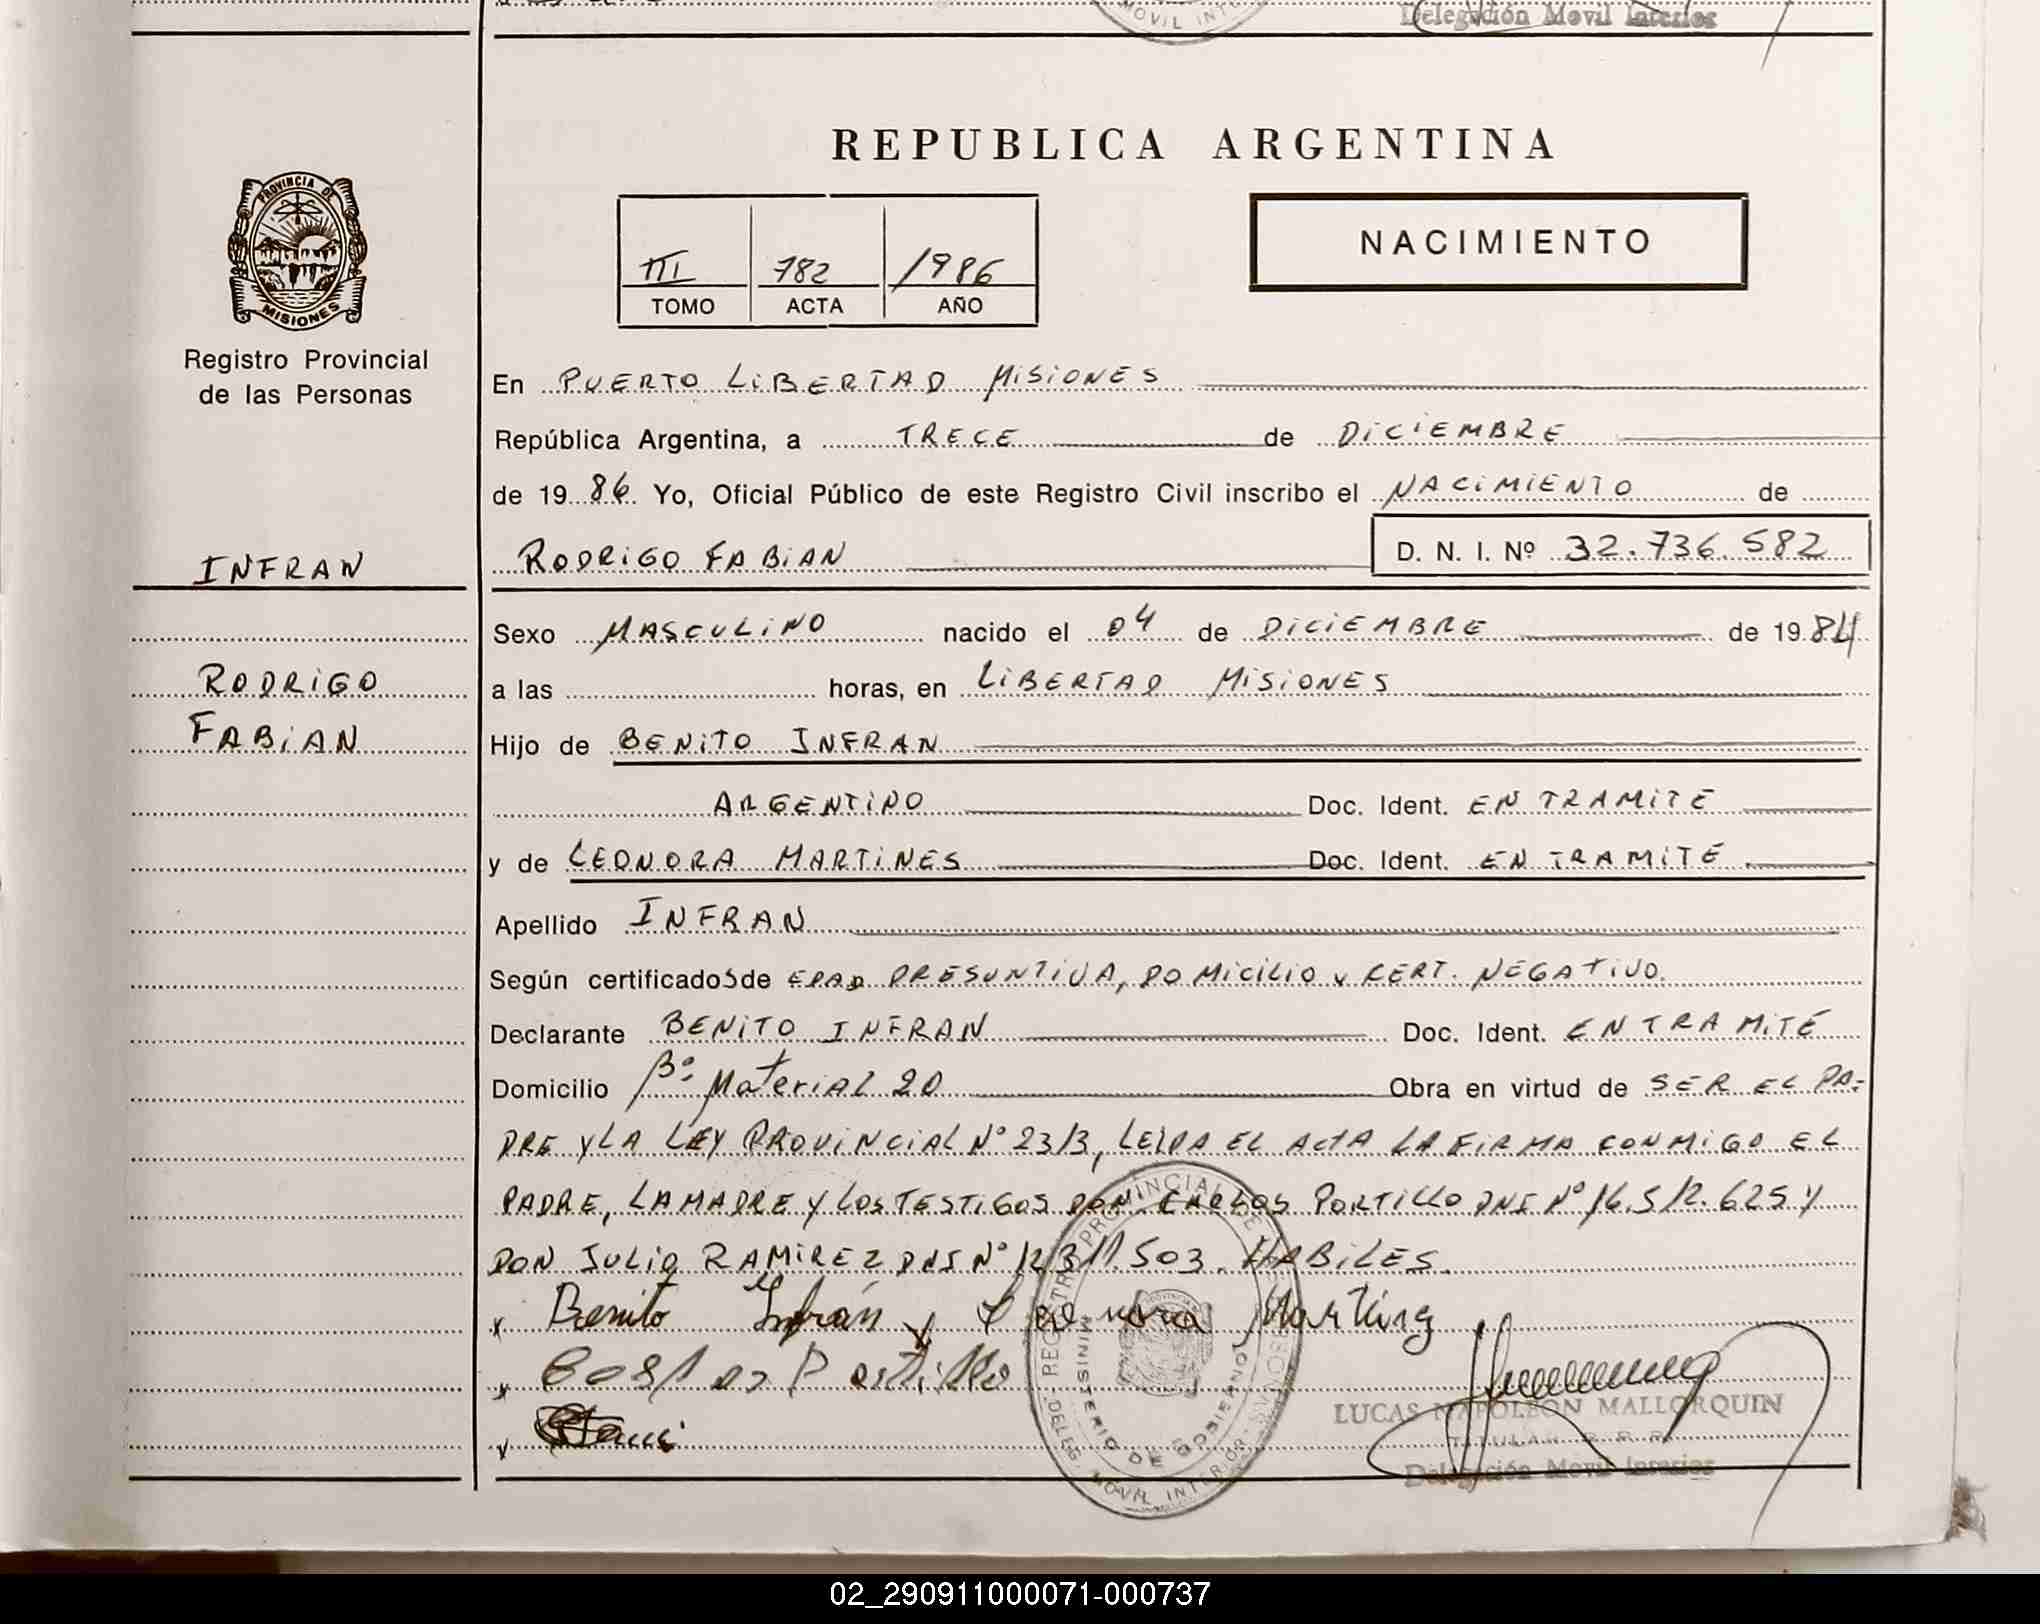 Delegación Movil Interior
MOVIL INTE
REPUBLICA ARGENTINA
PROVINCIA DE
MISIONES
Registro Provincial
de las Personas
NACIMIENTO
III 782 1986
TOMO ACTA AÑO
En PUERTO LIBERTAD MISIONES
República Argentina, a TRECE de DICIEMBRE
de 1986. Yo, Oficial Público de este Registro Civil inscribo el NACIMIENTO de
INFRAN
RODRIGO FABIAN D. N. I. Nº 32.736.582
Sexo MASCULINO nacido el 04 de DICIEMBRE de 1984
RODRIGO
a las horas, en LIBERTAD MISIONES
FABIAN
Hijo de BENITO INFRAN
ARGENTINO Doc. Ident. EN TRAMITE
y de LEONORA MARTINES Doc. Ident. EN TRAMITE
Apellido INFRAN
Según certificadoS de EDAD PRESUNTIVA, DOMICILIO y CERT. NEGATIVO.
Declarante BENITO INFRAN Doc. Ident. EN TRAMITE
Domicilio Bº Material 20 Obra en virtud de SER EL PA=
DRE Y LA LEY PROVINCIAL Nº 2313, LEIDA EL ACTA LA FIRMA CONMIGO EL
PADRE, LA MADRE Y LOS TESTIGOS DON CARLOS PORTILLO DNI Nº 16.512.625 Y
DON JULIO RAMIREZ DNI Nº 12.311.503. HABILES.
x Benito Infrán y Leonora Martinz
x Portillo
LUCAS NAPOLEON MALLORQUIN
TITULAR R. P. P.
Delegación Movil Interior
REGISTRO PROVINCIAL DE LAS PERSONAS
DELEG. MOVIL INTERIOR
MINISTERIO DE GOBIERNO
02_290911000071-000737